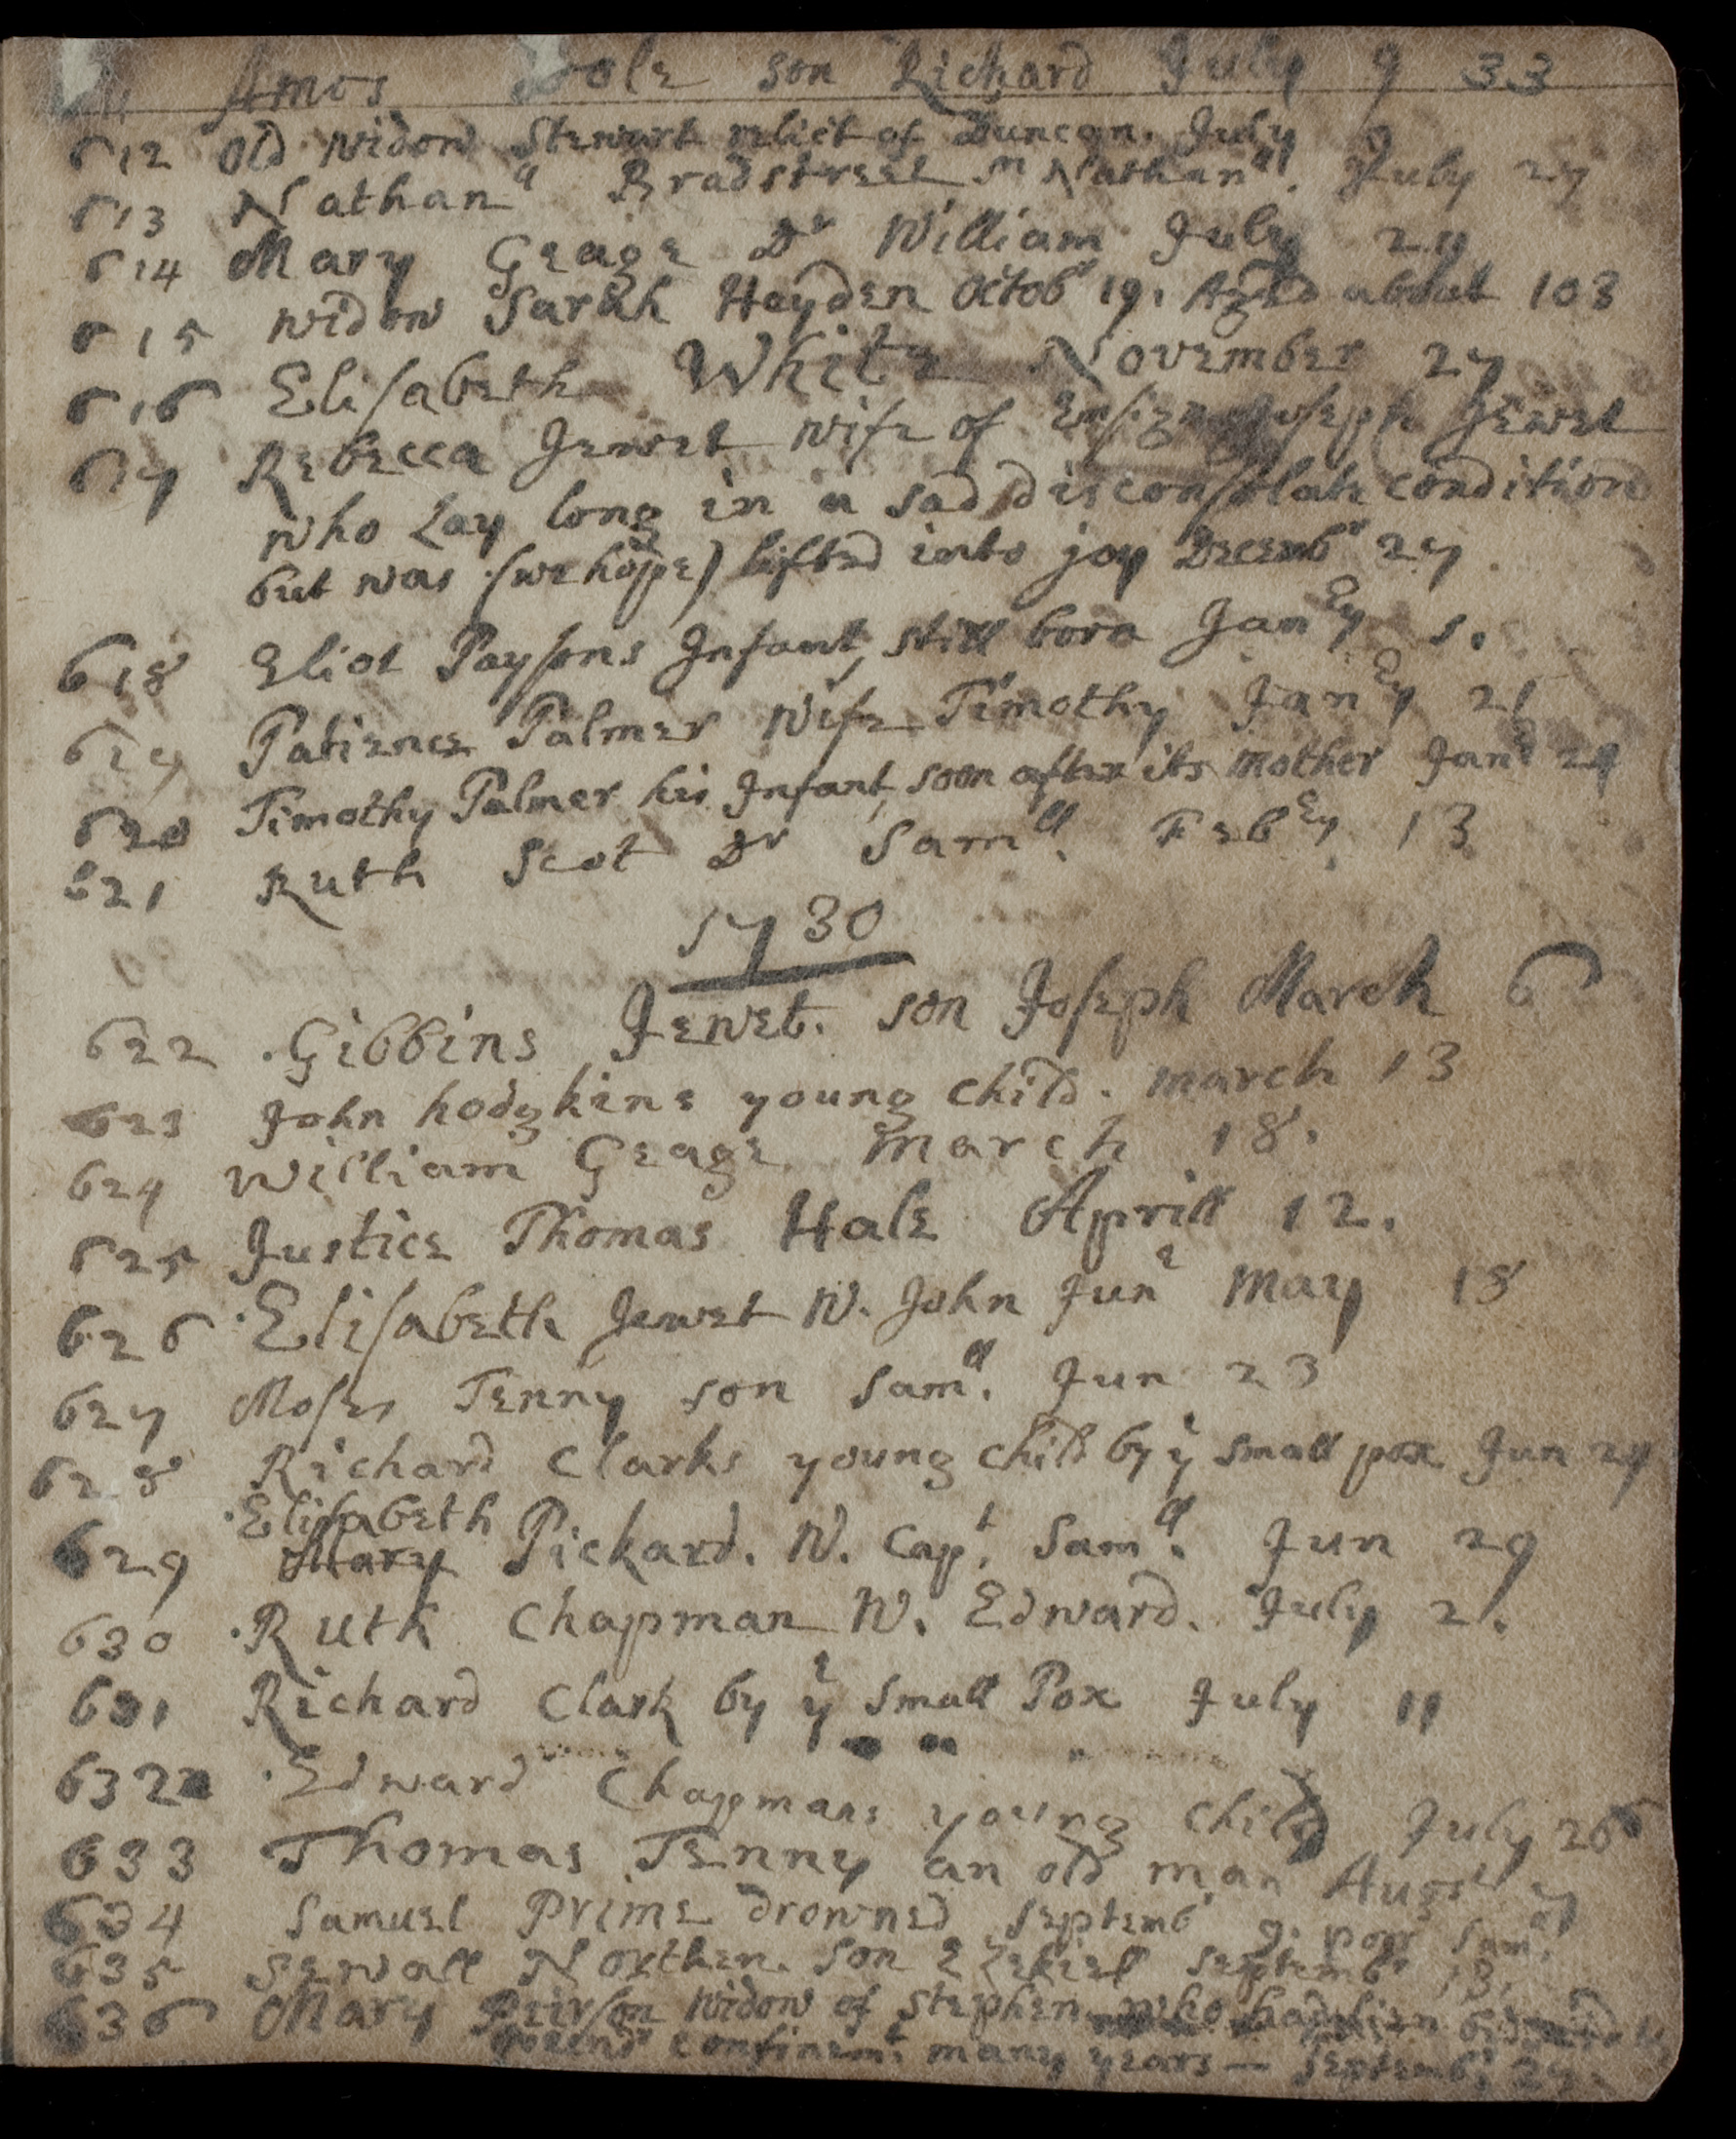 Amos Dole son Richard July 9 33
612 Old widow Stewart relict of Duncan. July 9
613 Nathanll Bradstreet sn Nathanll. July 27
614 Mary Geage Dr William July 29
615 widow Sarah Hayden Octobr 19. Aged about 103
616 Elisabeth White November 27
617 Rebecca Jewet wife of Ensign Joseph Jewet
who Lay long in a sad disconsolate condition
but was (we hope) lifted into joy Decembr 27
618 Eliot Paysons Infant, still born Janry 1.
619 Patience Palmer wife Timothy Janry 21
620 Timothy Palmer his Infant, soon after its mother Janr 24
621 Ruth Scot Dr Samll. Febry 13
1730
622 Gibbins Jewet. son Joseph March 6
623 John hodgkins young child. march 13
624 William Geage March 18.
625 Justice Thomas Hale Aprill 12.
626 Elisabeth Jewet W. John Junr May 18
627 Moses Tenny son Samll. Jun 23
628 Richard Clarks young child by ye small pox Jun 29
Elisabeth
629 Mary Pickard. W. Capt. Samll. Jun 29
630 Ruth Chapman W. Edward. July 2.
631 Richard Clark by ye Small Pox July 11
632 Edward Chapmans young child July 26
633 Thomas Tenny an old man Augst 7
634 Samuel Prime drowned Septembr 9. poor Samll
635 Sewall Northen. son Ezekiel Septembr 13.
636 Mary Peirson widow of Stephen who had lien
confinemt many years — Septembr 27.